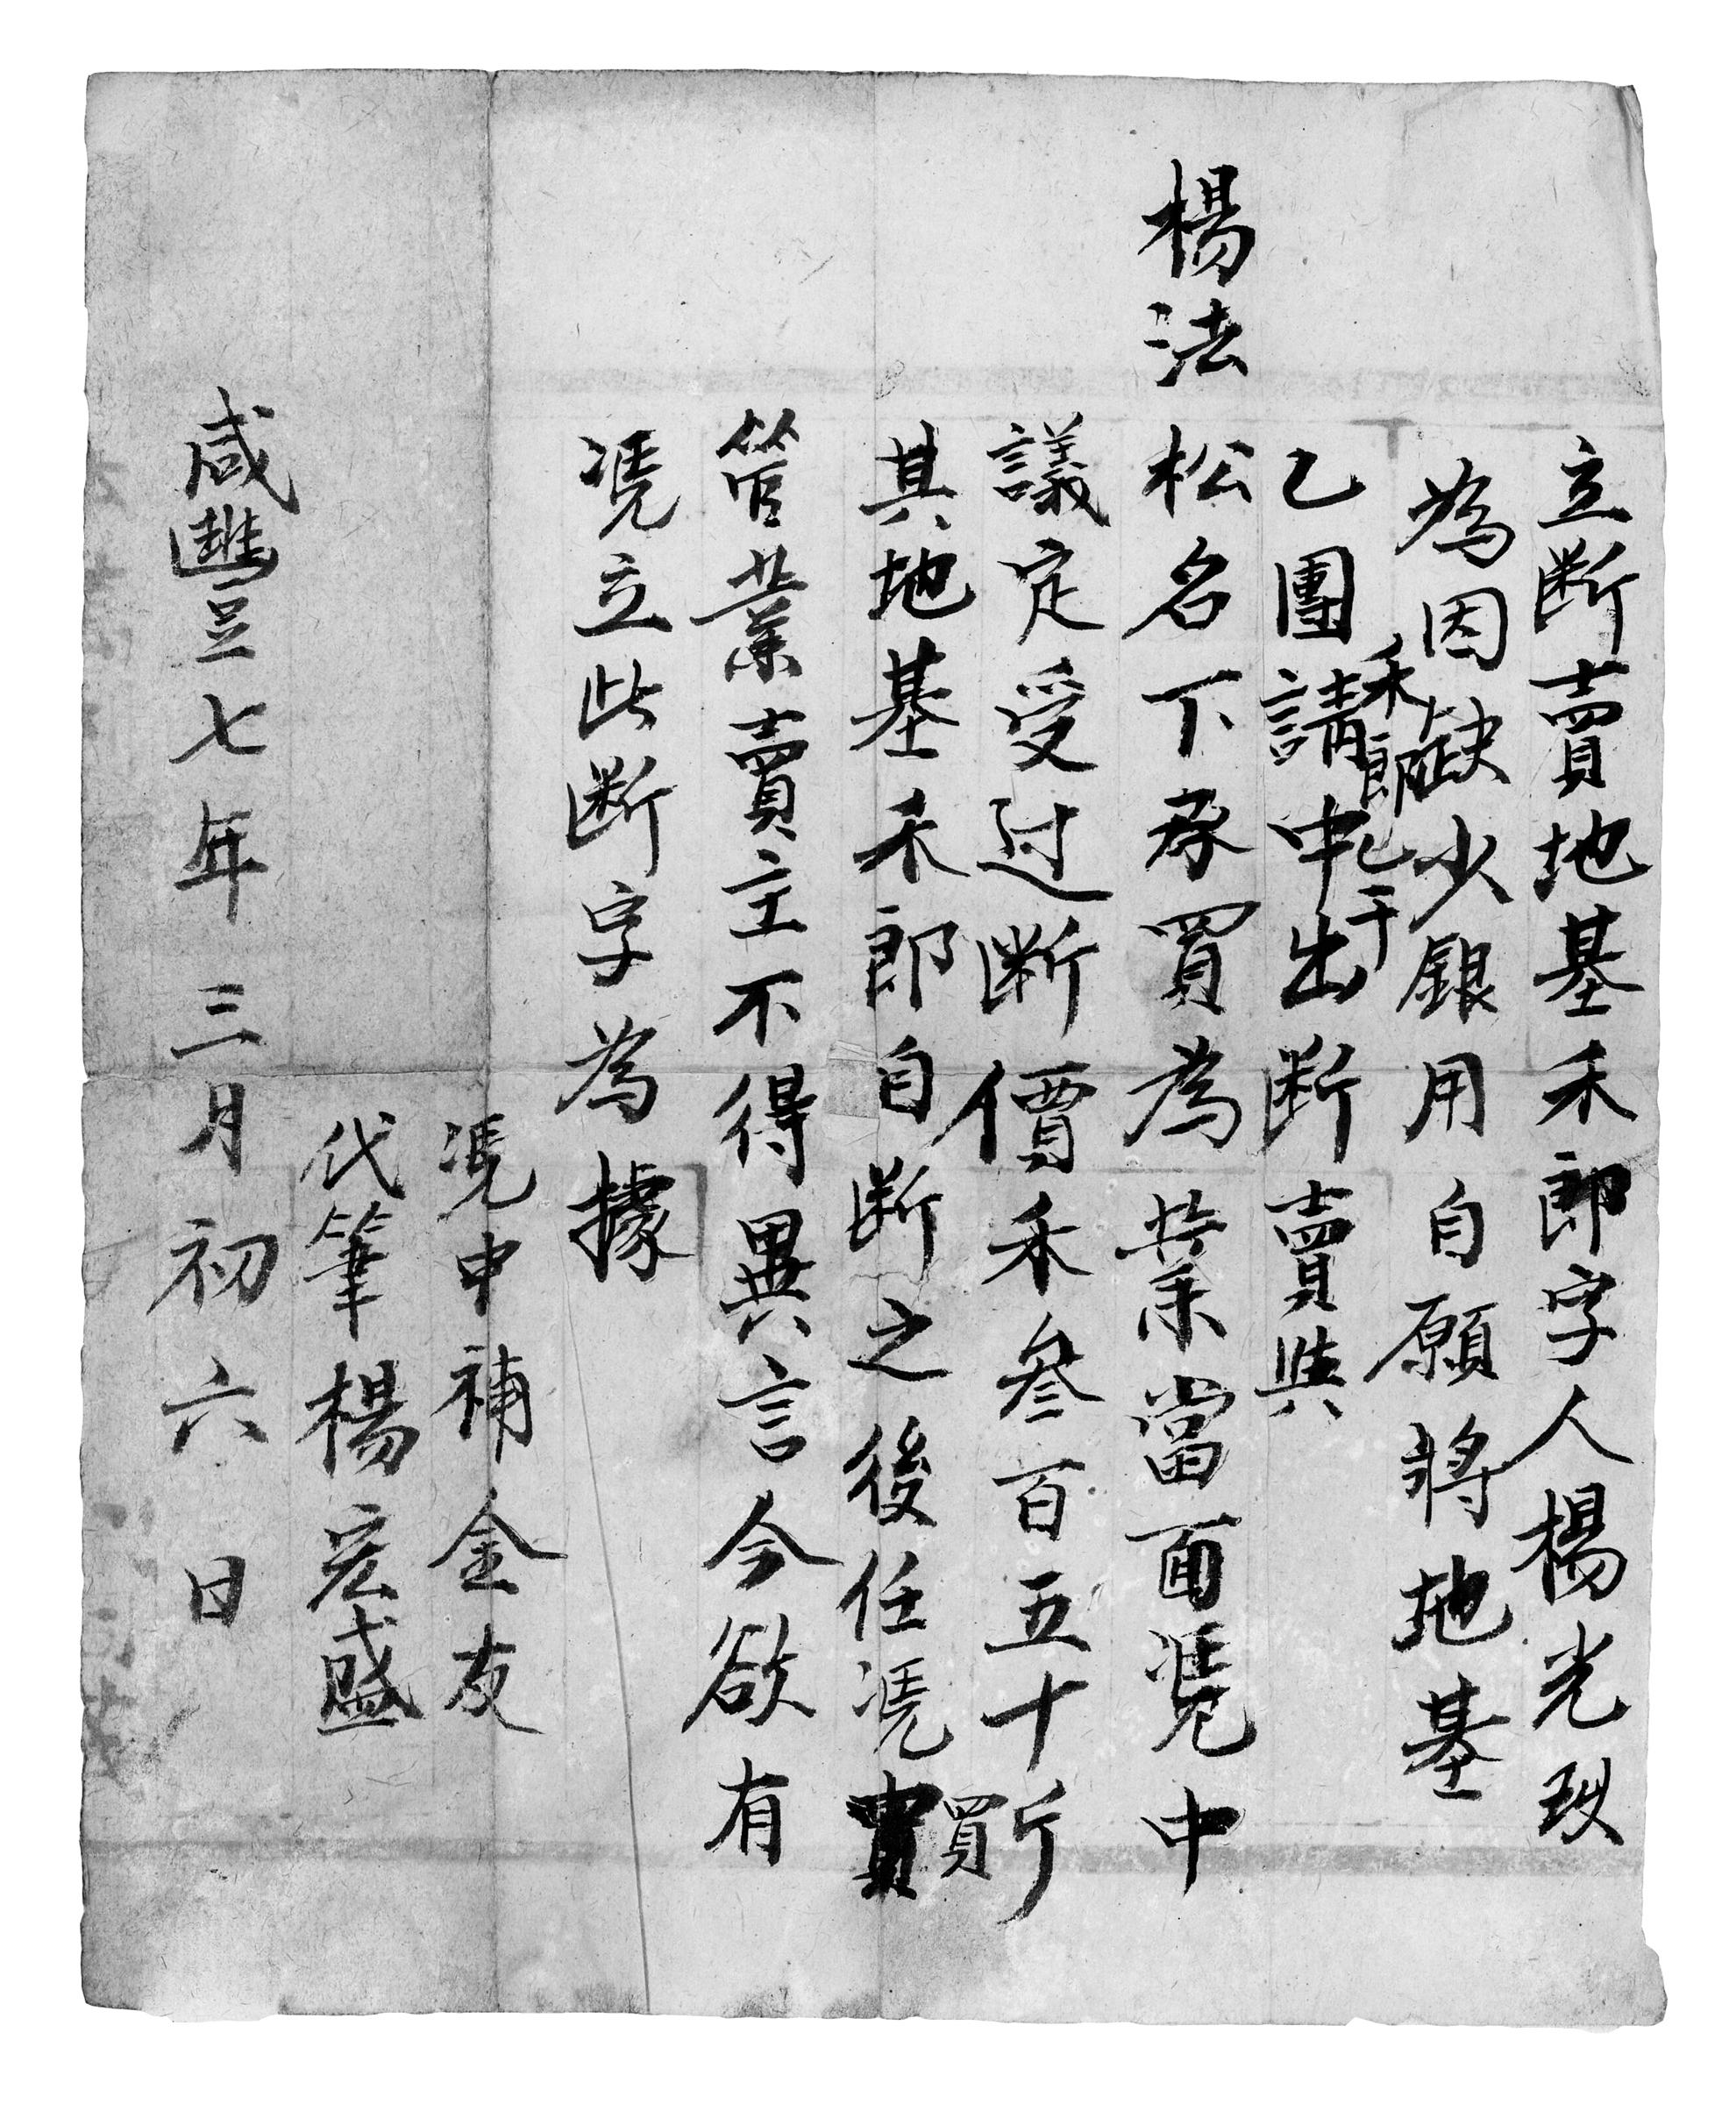 立断賣地基禾郎字人楊光玟
為因缺少銀用自願將地基
禾郎乙干
乙團請中出断賣與
楊法松名下承買為業當面凴中
議定受过断價禾叁百五十斤
其地基禾郎自断之後任凴買
管業賣主不得異言今欲有
凴立此断字為據
凴中補金友
代筆楊宏盛
咸豐七年三月初六日